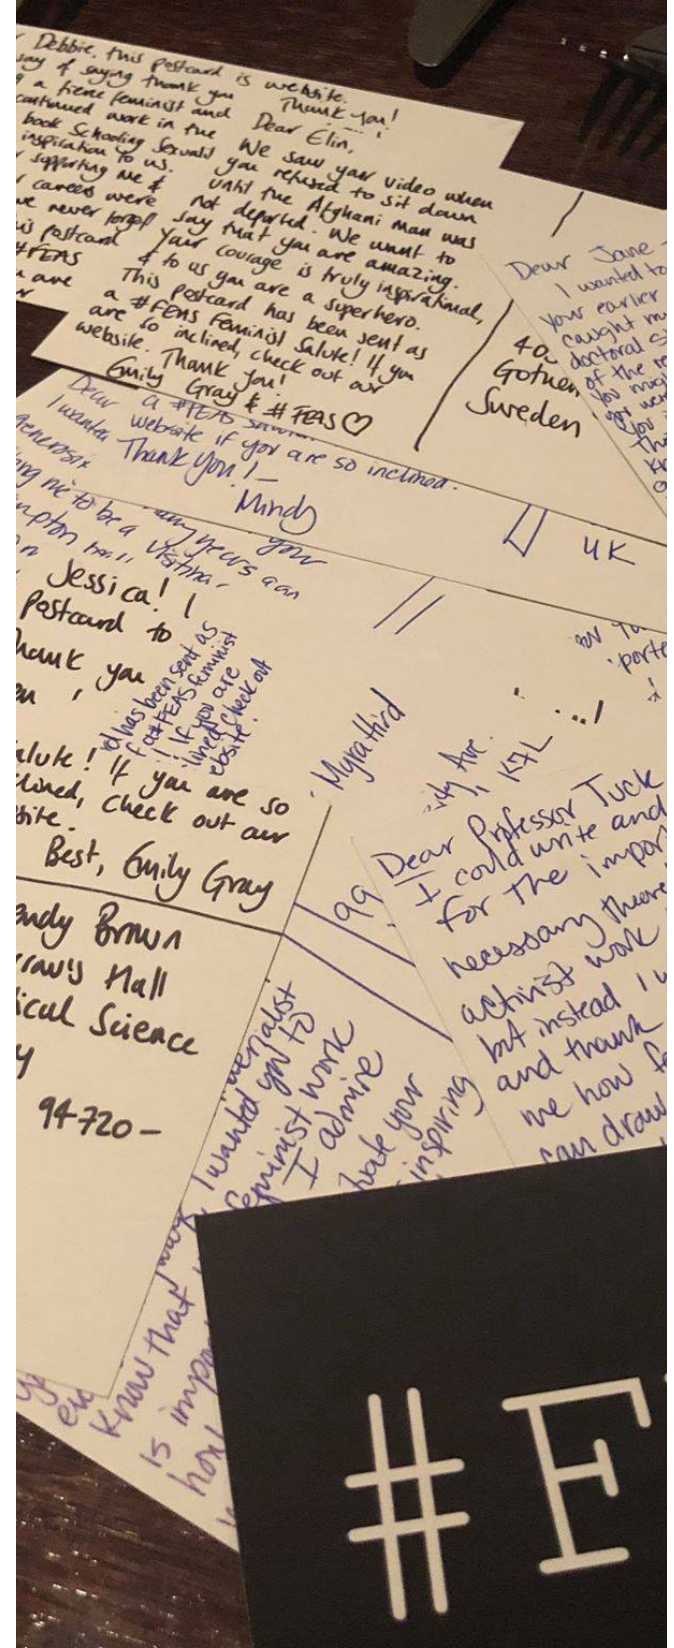 Debbie, this postcard is
way of saying thank you
a fierce feminist and
continued work in the
book Schooling Sexual
inspiration to us.
supporting me &
careers were
we never forget
is postcard
#FEAS
are
website.
Thank you!
Dear Elin,
We saw your video when
you refused to sit down
until the Afghani man was
not deported. We want to
say that you are amazing.
Your courage is truly inspirational,
& to us you are a superhero.
This postcard has been sent as
a #FEAS Feminist Salute! If you
are so inclined, check out our
website. Thank you!
Emily Gray & #FEAS ♡
40
Gothen
Sweden
Dear Jane -
I wanted to
your earlier
caught m
doctoral s
of the re
you migh
you were
you i
Tha
Dear a #FEAS
I wanted website if you are so inclined.
Thank you! -
Mindy
UK
your
many years
me to be a visiting
Jessica! I
Postcard to
Thank you
has been sent as
#FEAS feminist
! If you are
clined check out
ebsite!
alute! If you are so
clined, check out our
site.
Best, Emily Gray
Myra Hird
Ave.
K7L
99
Dear Professor Tuck
I could write and
for the impor
necessary theore
activist work
but instead I w
and thank
me how fe
can draw
Brown
Hall
ical Science
94720-
I wanted you to
feminist work
I admire
your
inspiring
know that
is impo
#F